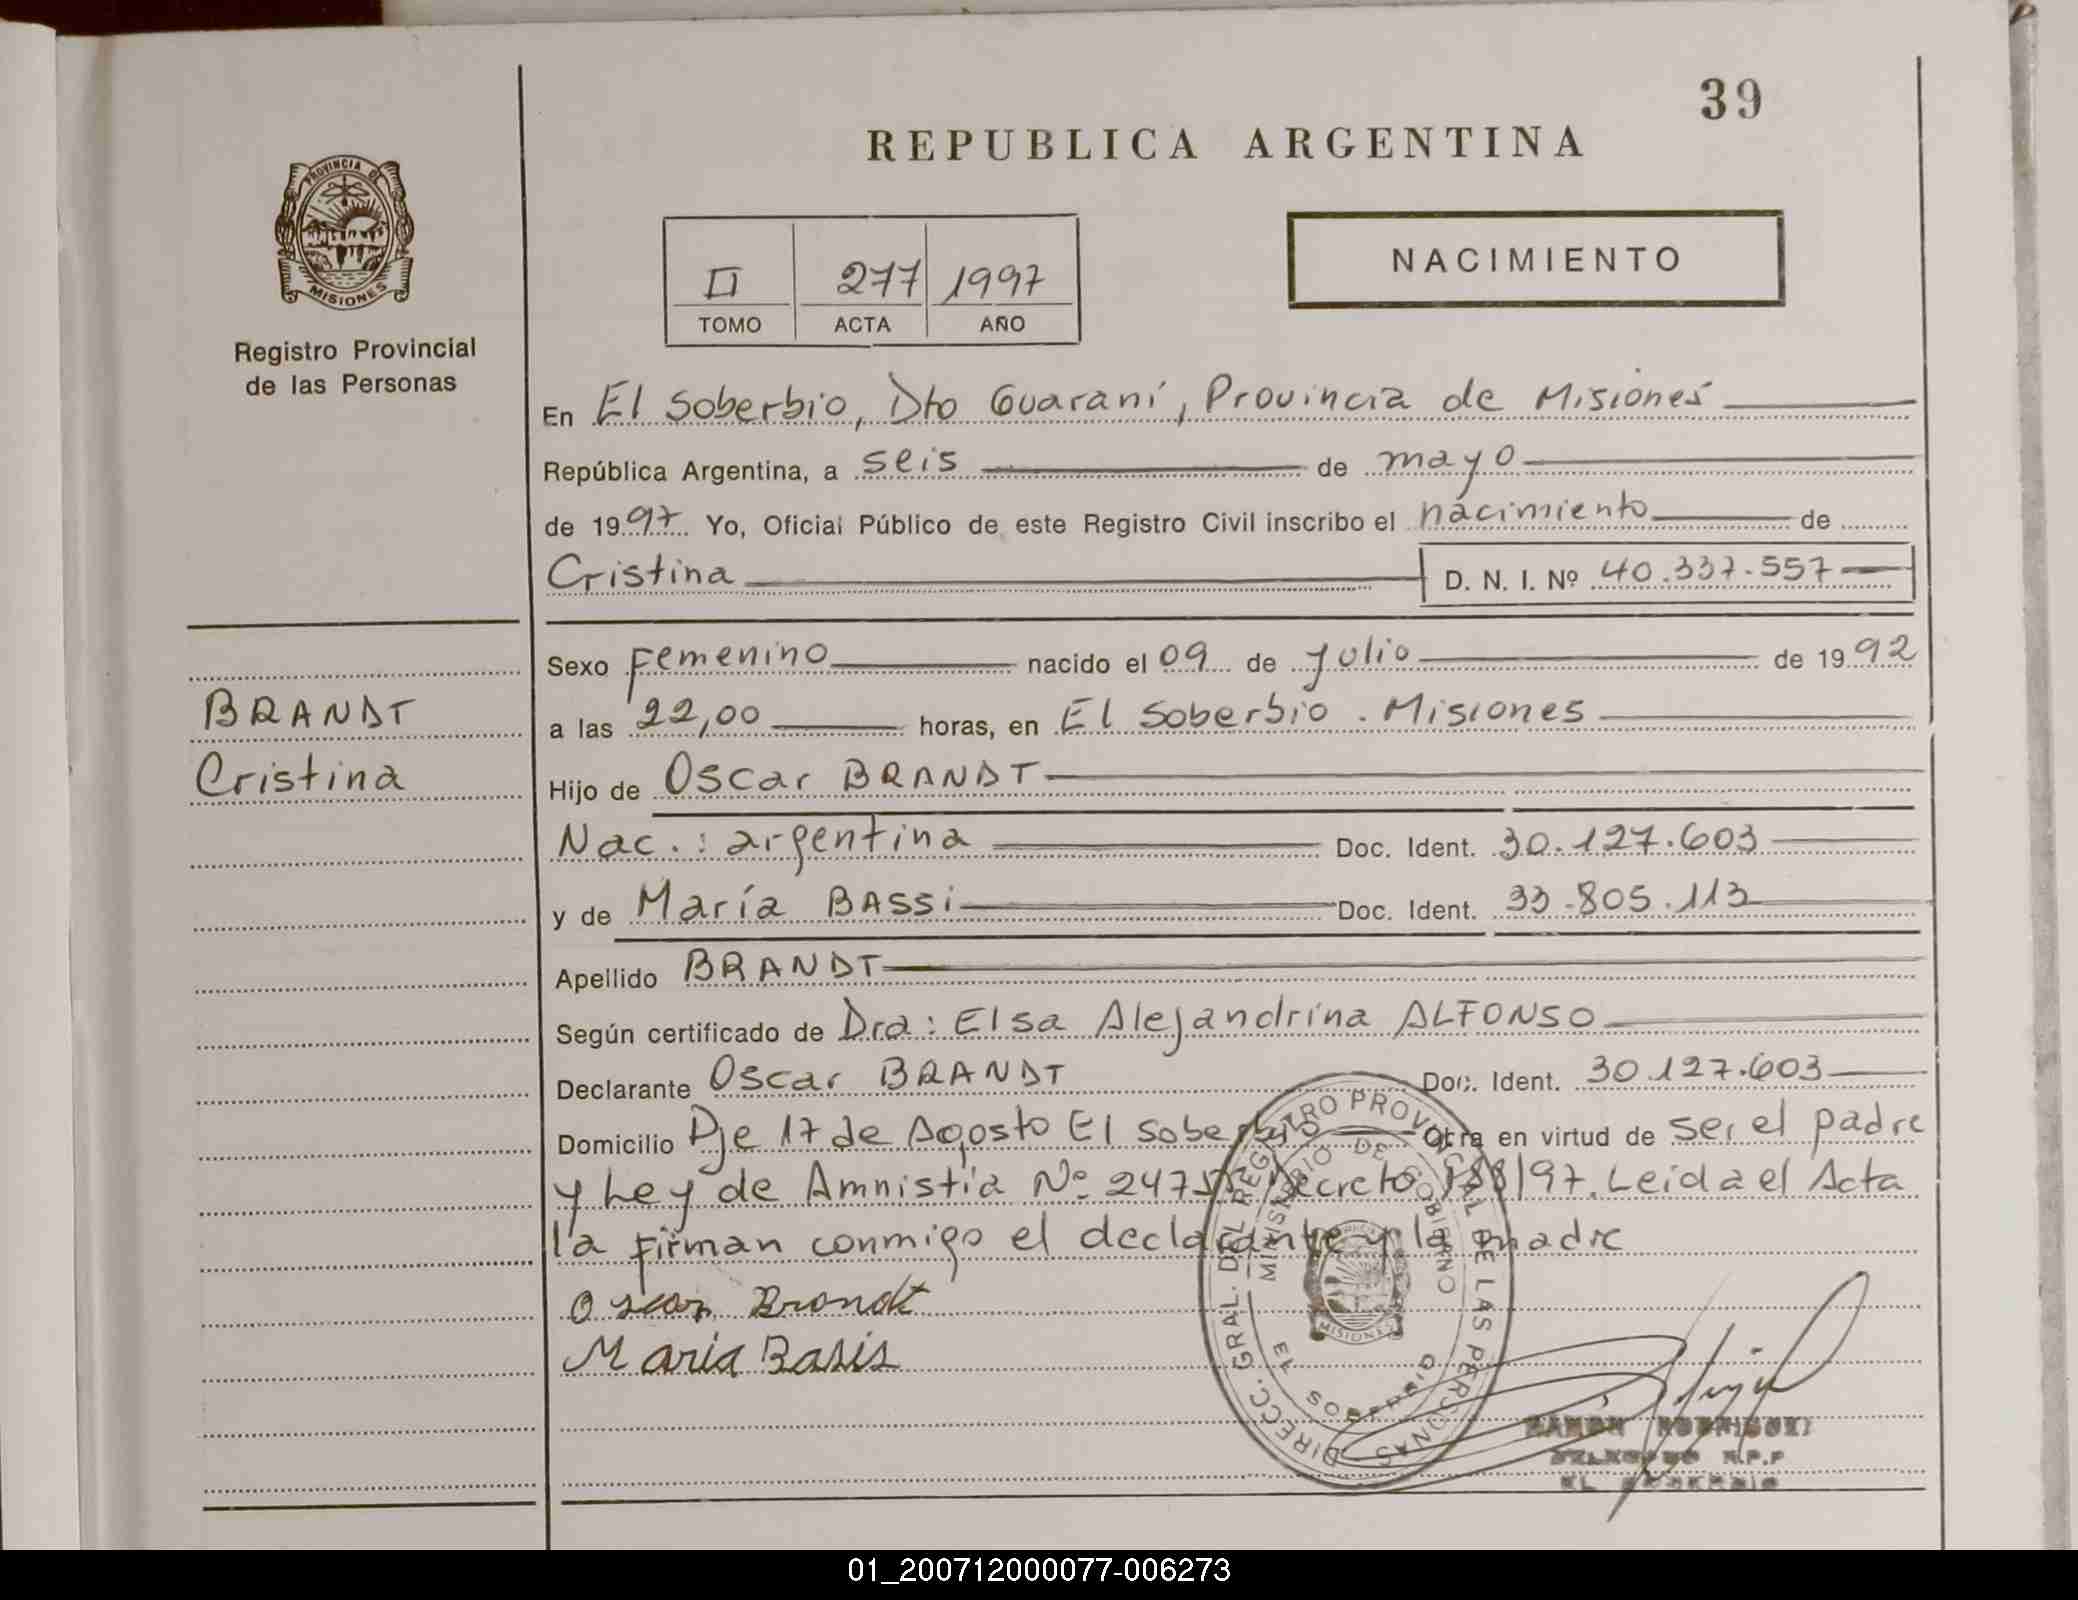 39
REPUBLICA ARGENTINA
PROVINCIA DE
MISIONES
Registro Provincial
de las Personas
II 277 1997
TOMO ACTA AÑO
NACIMIENTO
En El Soberbio, Dto Guaraní, Provincia de Misiones
República Argentina, a seis de mayo
de 1997 Yo, Oficial Público de este Registro Civil inscribo el nacimiento de
Cristina D. N. I. Nº 40.337.557
Sexo Femenino nacido el 09 de Julio de 1992
BRANDT
Cristina
a las 22,00 horas, en El Soberbio . Misiones
Hijo de Oscar BRANDT
Nac.: argentina Doc. Ident. 30.127.603
y de María BASSi Doc. Ident. 33.805.113
Apellido BRANDT
Según certificado de Dra: Elsa Alejandrina ALFONSO
Declarante Oscar BRANDT Doc. Ident. 30.127.603
Domicilio Pje 17 de Agosto El Soberbio Otra en virtud de ser el padre
y Ley de Amnistía Nº 24755 Decreto 188/97. Leida el Acta
la firman conmigo el declarante y la madre
Oscar Brandt
Maria Basis
DIRECC. GRAL. DEL REGISTRO PROVINCIAL DE LAS PERSONAS
MINISTERIO DE GOBIERNO
MISIONES
EL SOBERBIO
DELEGADO R.P.P
EL SOBERBIO
01_200712000077-006273